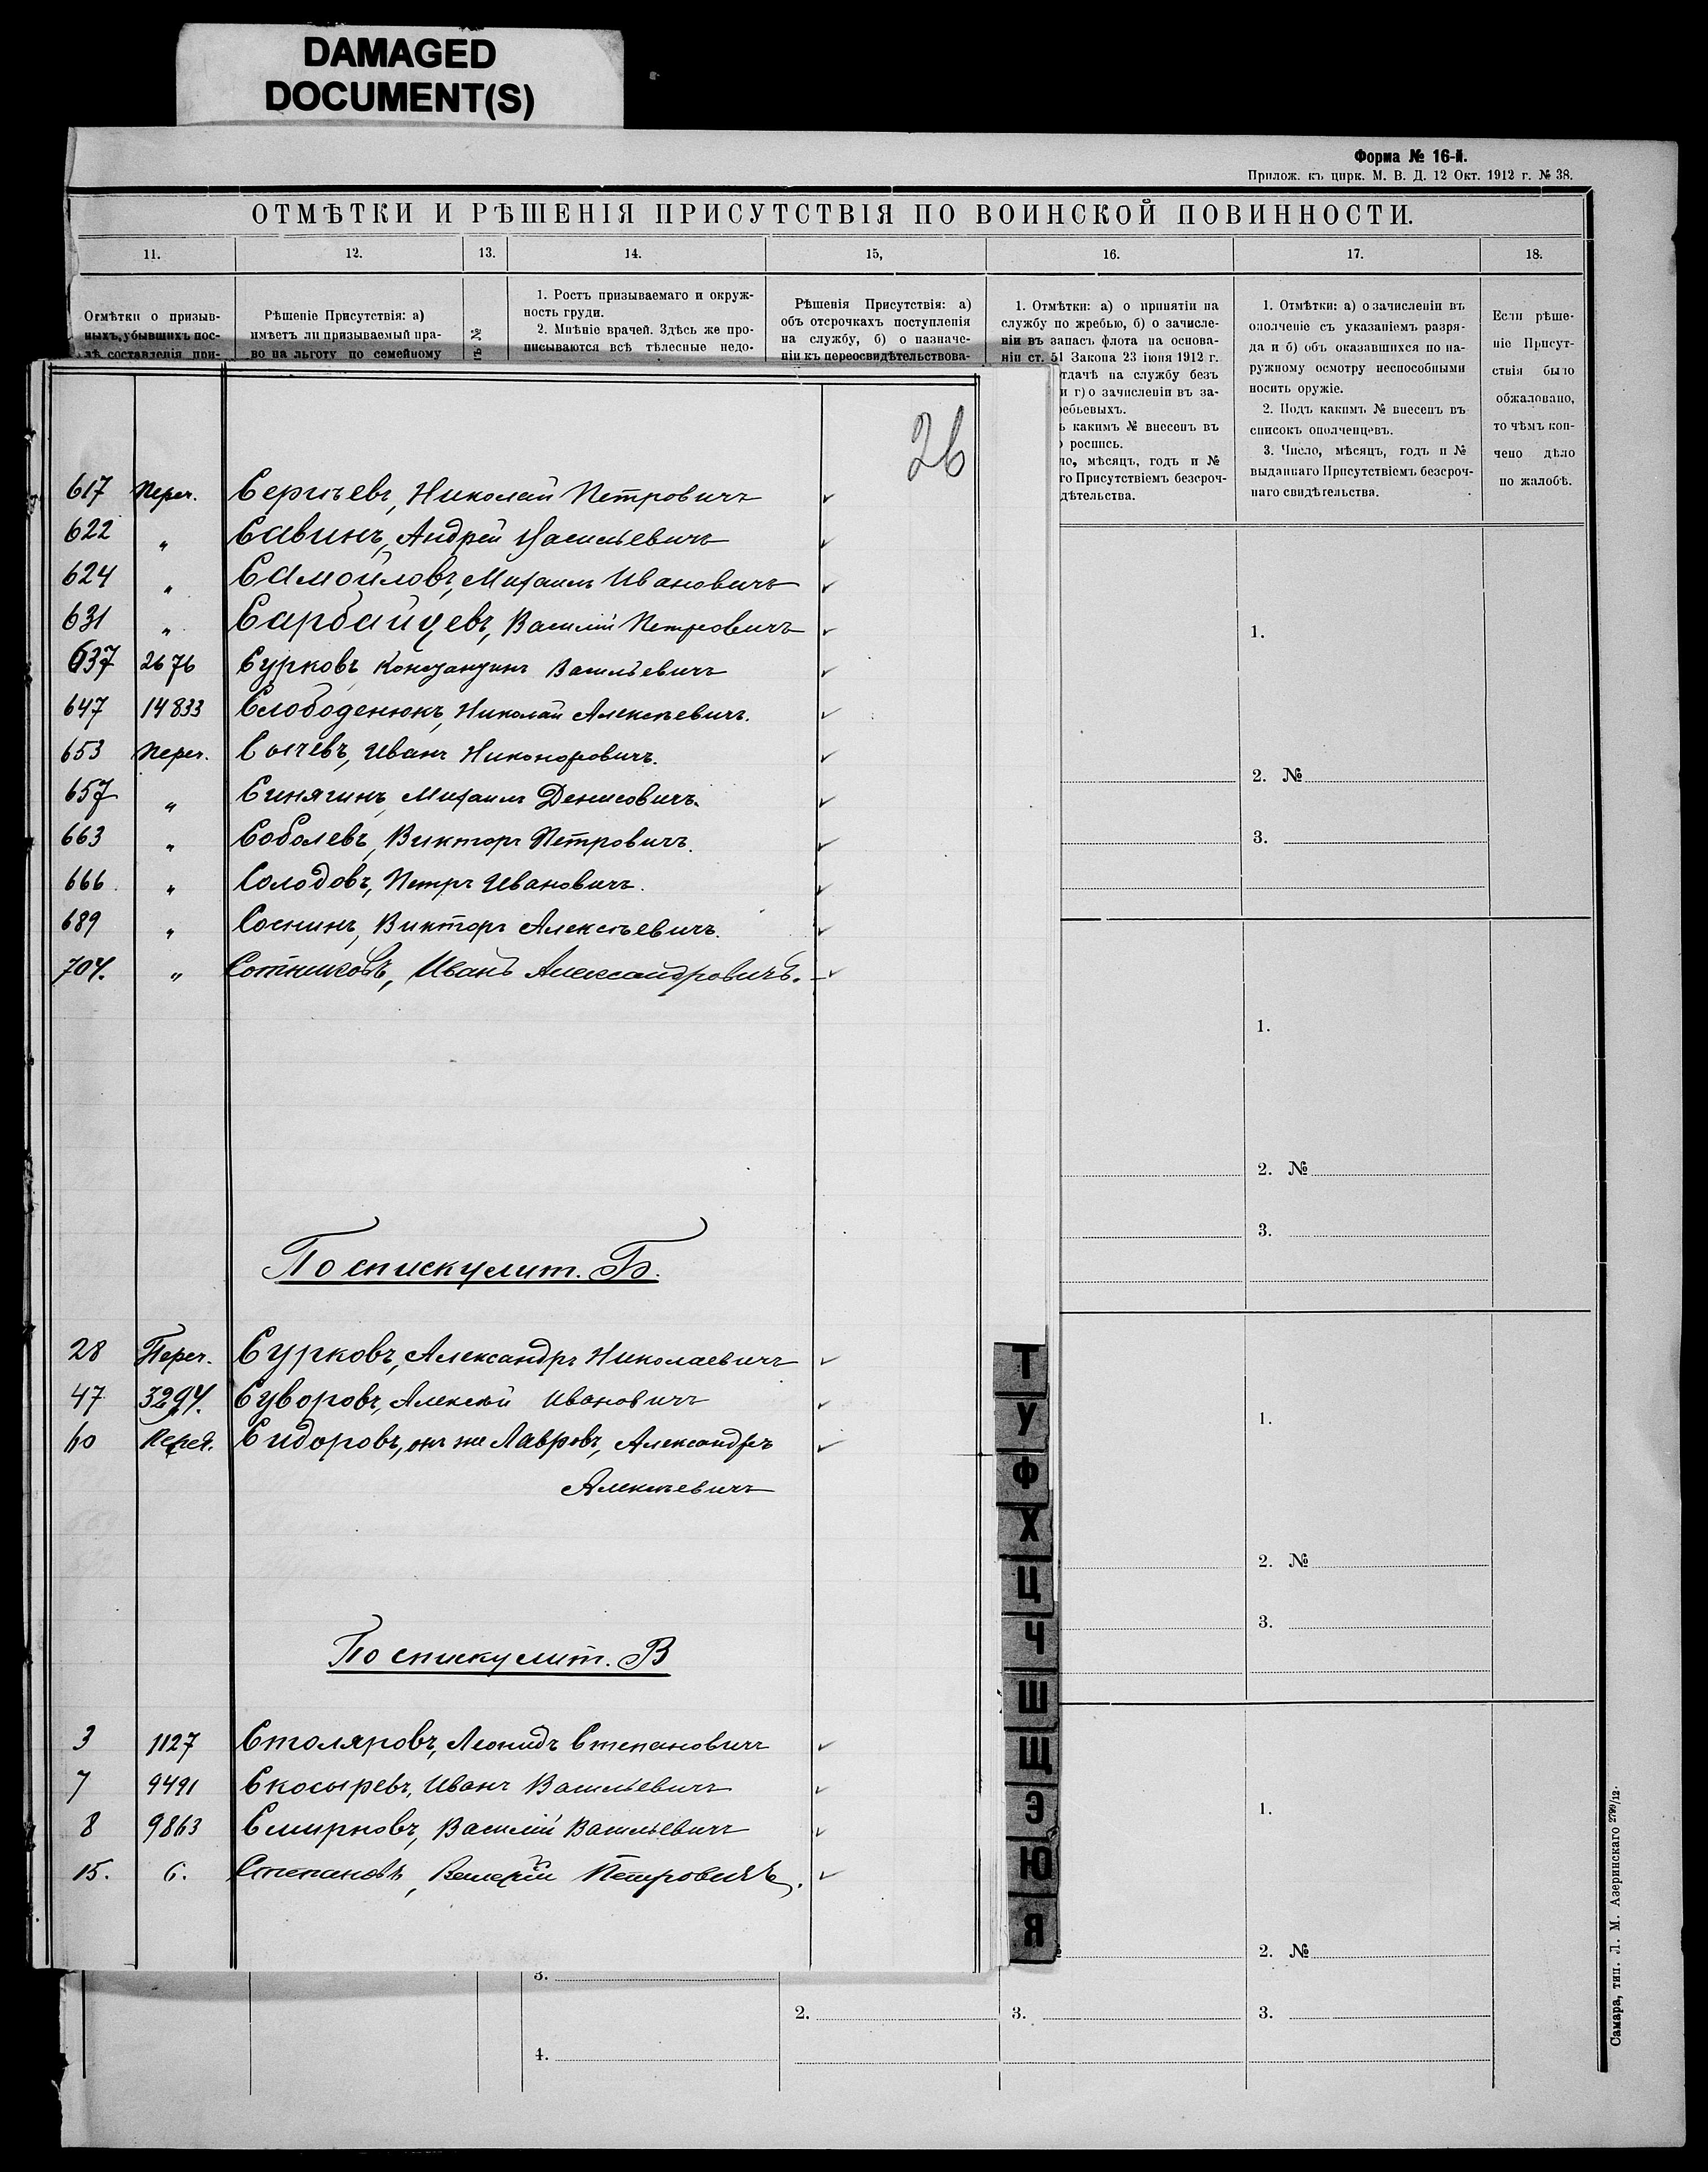 DAMAGED
DOCUMENT(S)
Форма № 16-й.
Прилож. къ цирк. М. В. Д. 12 Окт. 1912 г. № 38.
ОТМѢТКИ И РѢШЕНІЯ ПРИСУТСТВІЯ ПО ВОИНСКОЙ ПОВИННОСТИ.
11. 12. 13. 14. 15, 16. 17. 18.
Отмѣтки о призыв-
ныхъ, убывшихъ пос-
лѣ составленія при-
Рѣшеніе Присутствія: а)
имѣетъ ли призываемый пра-
во на льготу по семейному
№
1. Ростъ призываемаго и окруж-
ность груди.
2. Мнѣніе врачей. Здѣсь же про-
писываются всѣ тѣлесные недо-
Рѣшенія Присутствія: а)
объ отсрочкахъ поступленія
на службу, б) о назначе-
ніи къ переосвидѣтельствова-
1. Отмѣтки: а) о принятіи на
службу по жребью, б) о зачисле-
ніи въ запасъ флота на основа-
ніи ст. 51 Закона 23 іюня 1912 г.
тдачѣ на службу безъ
и г) о зачисленіи въ за-
ребьевыхъ.
ъ какимъ № внесенъ въ
роспись.
ло, мѣсяцъ, годъ и №
го Присутствіемъ безсроч-
дѣтельства.
1. Отмѣтки: а) о зачисленіи въ
ополченіе съ указаніемъ разря-
да и б) объ оказавшихся по на-
ружному осмотру неспособными
носить оружіе.
2. Подъ какимъ № внесенъ въ
списокъ ополченцевъ.
3. Число, мѣсяцъ, годъ и №
выданнаго Присутствіемъ безсроч-
наго свидѣтельства.
Если рѣше-
ніе Присут-
ствія было
обжаловано,
то чѣмъ кон-
чено дѣло
по жалобѣ.
26
617 Переч. Сергѣевъ, Николай Петровичъ
622 " Савинъ, Андрей Васильевичъ
624 " Самойловъ, Михаилъ Ивановичъ
631 " Сарбайцевъ, Василій Петровичъ
637 2676 Сурковъ Константинъ Васильевичъ
647 14833 Слободенюкъ, Николай Алексѣевичъ.
653 Переч. Сычевъ, Иванъ Никоноровичъ.
657 " Синягинъ, Михаилъ Денисовичъ.
663 " Соболевъ, Викторъ Петровичъ.
666. " Солодовъ, Петръ Ивановичъ.
689 " Соснинъ, Викторъ Алексѣевичъ.
704. " Сотниковъ, Иванъ Александровичъ.
По списку лит. Б.
28 Переч. Сурковъ, Александръ Николаевичъ
47 3294. Суворовъ, Алексѣй Ивановичъ
60 Переч. Сидоровъ, онъ же Лавровъ, Александръ
Алексѣевичъ
По списку лит. В
3 1127 Столяровъ, Леонидъ Степановичъ
7 9491 Скосыревъ, Иванъ Васильевичъ
8 9863 Смирновъ, Василій Васильевичъ
15. 6. Степановъ, Валерій Петровичъ.
Т
У
Ф
Х
Ц
Ч
Ш
Щ
Э
Ю
Я
1.
2. №
3.
1.
2. №
3.
1.
2. №
3.
1.
2. №
3.
2. 3. 3.
4.
Самара, тип. Л. М. Азеринскаго 2799/12.